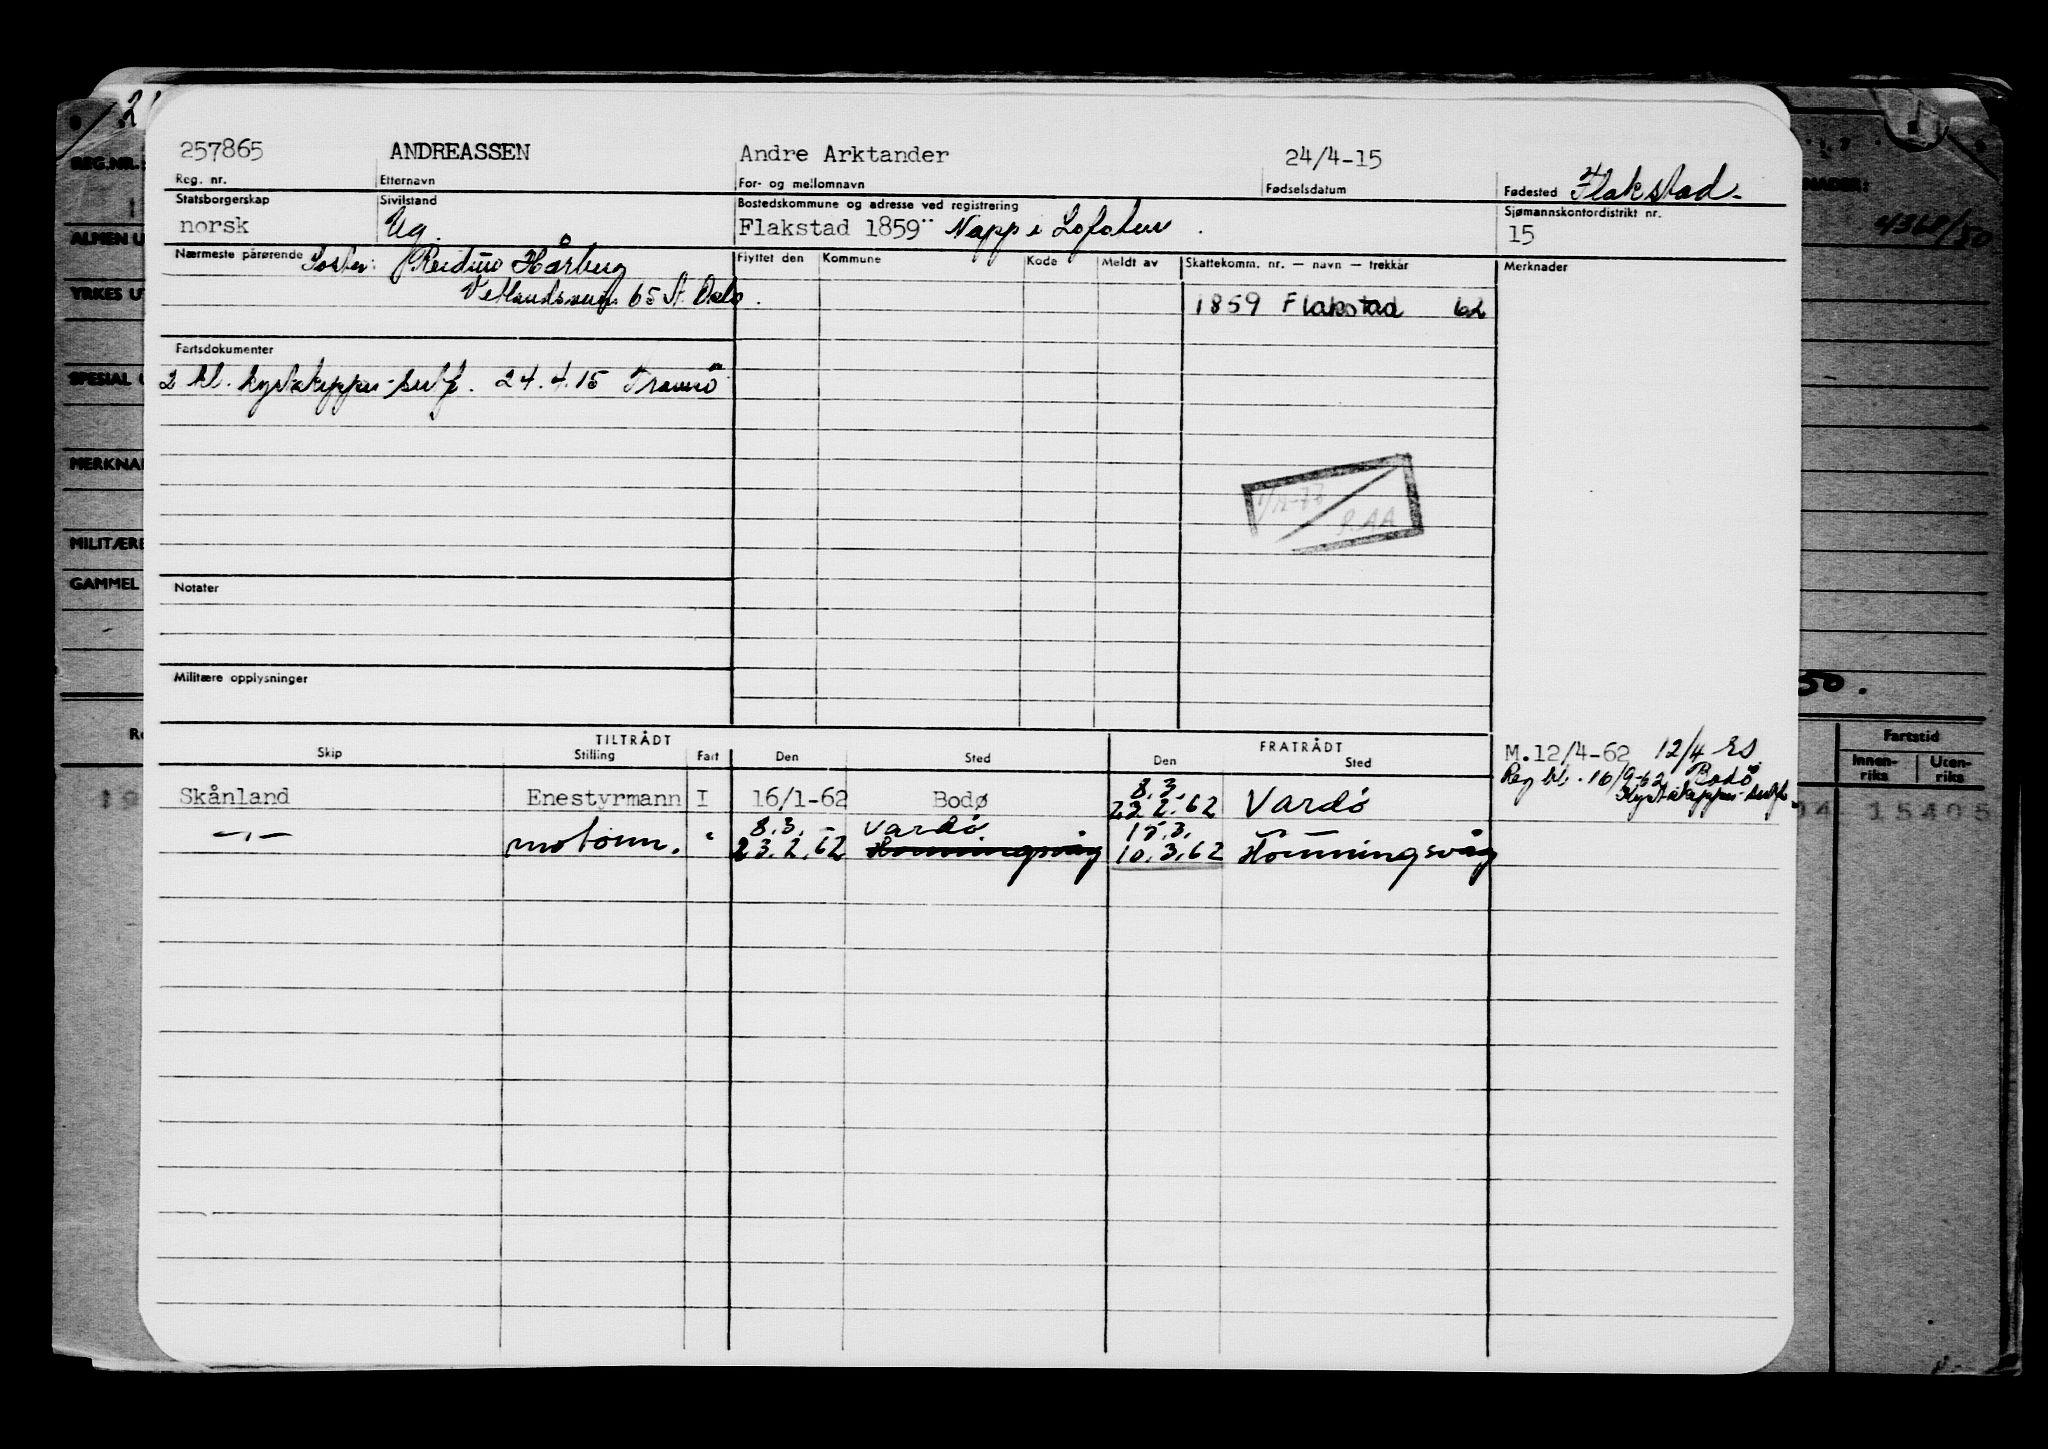 257865 ANDREASSEN Andre Arktander 24/4-15 Flakstad.
Reg. nr. Etternavn For- og mellomnavn Fødselsdatum Fødested
Statsborgerskap Sivilstand Bostedskommune og adresse ved registrering Sjømannskontordistrikt nr.
norsk Ug. Flakstad 1859 Napp i Lofoten 15
Nærmeste pårørende Flyttet den Kommune Kode Meldt av Skattekomm. nr. — navn — trekkår Merknader
Hårberg
65 Oslo.
1859 Flakstad 62
Fartsdokumenter
2 kl. kystskipper-sertf. 24.4.15 Tromsö
Notater
Militære opplysninger
TILTRÅDT FRATRÅDT
Skip Stilling Fart Den Sted Den Sted
M.12/4-62 12/4
Bodö
Kystskipper-sertf.
Skånland Enestyrmann I 16/1-62 Bodø 8.3. 23.2.62 Vardö
—"— motorm. " 8.3. 23.2.62 Vardö Honningsvåg 15.3. 10.3.62 Honningsvåg
REG.NR.:
ALMEN U
YRKES UT
SPESIAL U
MERKNA
MILITÆRE
GAMMEL
4360/50
50.
Fartstid
Innen-riks Uten-riks
15405